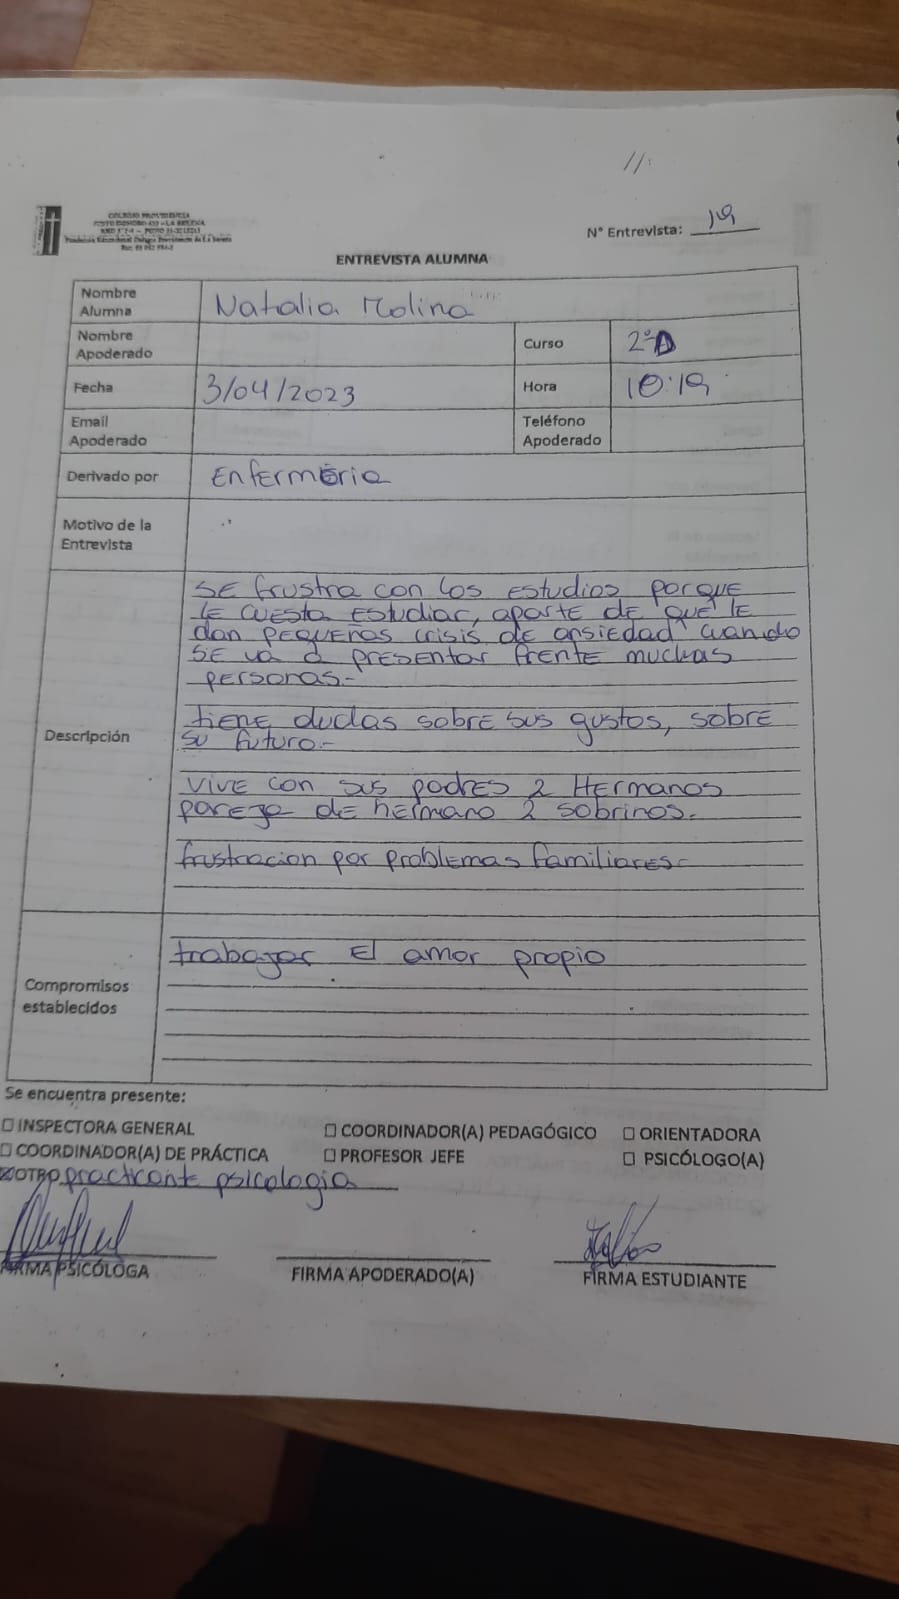 COLEGIO PROVIDENCIA
N° Entrevista: 19
ENTREVISTA ALUMNA
Nombre Alumna Natalia Molina
Nombre Apoderado Curso 2°D
Fecha 3/04/2023 Hora 10:19
Email Apoderado Teléfono Apoderado
Derivado por Enfermeria
Motivo de la Entrevista
SE frustra con los estudios porque
le cuesta estudiar, aparte de que le
dan pequeñas crisis de ansiedad cuando
se va a presentar frente muchas
personas.-
tiene dudas sobre sus gustos, sobre
Descripción
su futuro.-
vive con sus padres 2 Hermanos
pareja de hermano 2 sobrinos.
frustracion por problemas familiares-
trabajar El amor propio
Compromisos establecidos
Se encuentra presente:
☐ INSPECTORA GENERAL ☐ COORDINADOR(A) PEDAGÓGICO ☐ ORIENTADORA
☐ COORDINADOR(A) DE PRÁCTICA ☐ PROFESOR JEFE ☐ PSICÓLOGO(A)
☒ OTRO practicante psicologia
FIRMA PSICÓLOGA FIRMA APODERADO(A) FIRMA ESTUDIANTE